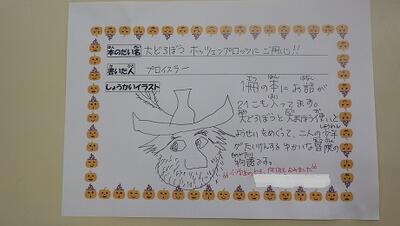 本のだい名 大どろぼう ホッツェンプロッツにご用心!!
書いた人 プロイスラー
しょうかいイラスト
1冊の本にお話が
21こも入ってます。
大どろぼうと大まほう使いと
ようせいをめぐって、二人の少年
がたいけつする ゆかいな冒険の
物語です。